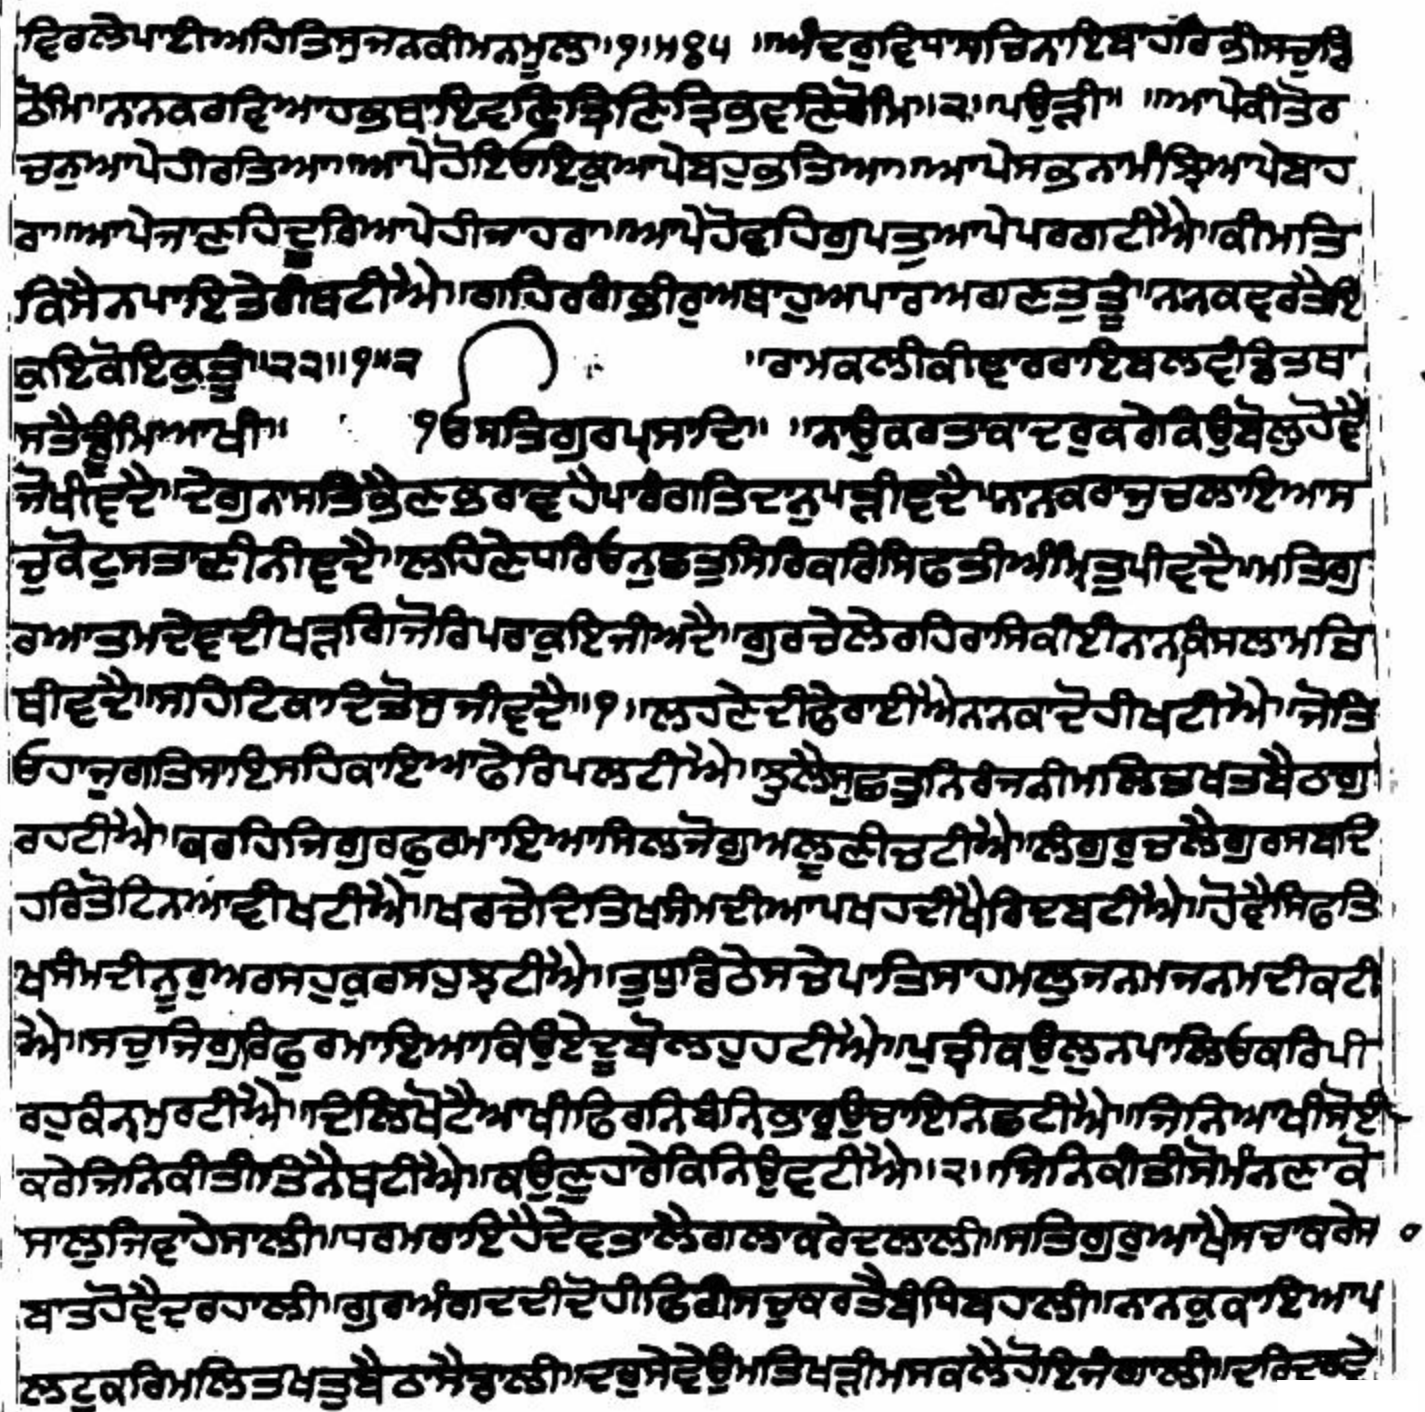 ਵਿਰਲੇਪਾਈਅਹਿਤਿਸੁਜਨਕੀਮਨਮੂਲਾ॥੧॥ਮ੪੫ ॥ਅੰਦਰੁਵਿਧਾਸਚਿਨਾਇਬਾਹਰਿਭੀਸਚੁਡਿ
ਠੋਮਿ॥ਨਨਕਰਵਿਆਹਭਥਾਇਵਣਿਤ੍ਰਿਣਿਤ੍ਰਿਭਵਣਿਰੋਮਿ॥੨॥ਪਉੜੀ॥ ॥ਆਪੇਕੀਤੋਰ
ਚਨੁਆਪੇਹੀਰਤਿਆ॥ਆਪੇਹੋਇਓਇਕੁਆਪੇਬਹੁਭਤਿਆ॥ਆਪੇਸਭਨਾਮੰਝਿਆਪੇਬਾਹ
ਰਾ॥ਆਪੇਜਾਣਹਿਦੂਰਿਆਪੇਹੀਜਾਹਰਾ॥ਆਪੇਹੋਵਹਿਗੁਪਤੁਆਪੇਪਰਗਟੀਐ॥ਕੀਮਤਿ
ਕਿਸੈਨਪਾਇਤੇਰੀਥਟੀਐ॥ਗਹਿਰਗੰਭੀਰੁਅਥਾਹੁਅਪਾਰਅਗਣਤੁਤੂੰ॥ਨਨਕਵਰਤੈਇ
ਕੁਇਕੋਇਕੁਤੂੰ॥੨੨॥੧॥੨ ॥ਰਾਮਕਲੀਕੀਵਾਰਰਾਇਬਲਵੰਡਿਤਥਾ
ਸਤੈਡੂਮਿਆਖੀ॥ ੧ਓਸਤਿਗੁਰਪ੍ਰਸਾਦਿ॥ ॥ਨਾਉਕਰਤਾਕਾਦਰੁਕਰੇਕਿਉਬੋਲੁਹੋਵੈ
ਜੋਖੀਵਦੈ॥ਦੇਗੁਨਾਸਤਿਭੈਣਭਰਾਵਹੈਪਾਰੰਗਤਿਦਾਨੁਪੜੀਵਦੈ॥ਨਨਕਰਾਜੁਚਲਾਇਆਸ
ਚੁਕੋਟੁਸਤਾਣੀਨੀਵਦੈ॥ਲਹਿਣੇਧਰਿਓਨੁਛਤੁਸਿਰਿਕਰਿਸਿਫਤੀਅੰਮ੍ਰਿਤੁਪੀਵਦੈ॥ਮਤਿਗੁ
ਰਆਤਮਦੇਵਦੀਖੜਗਿਜੋਰਿਪਰਾਕੁਇਜੀਅਦੈ॥ਗੁਰਚੇਲੇਰਹਿਰਾਸਿਕੀਈਨਾਨਕਿਸਲਾਮਤਿ
ਥੀਵਦੈ॥ਸਹਿਟਿਕਾਦਿਤੋਸੁਜੀਵਦੈ॥੧॥ਲਹਣੇਦੀਫੇਰਾਈਐਨਨਕਾਦੋਹੀਖਟੀਐ॥ਜੋਤਿ
ਓਹਾਜੁਗਤਿਸਾਇਸਹਿਕਾਇਆਫੇਰਿਪਲਟੀਐ॥ਝੁਲੈਸੁਛਤੁਨਿਰੰਜਨੀਮਲਿਤਖਤਬੈਠਗੁ
ਰਹਟੀਐ॥ਕਰਹਿਜਿਗੁਰਫੁਰਮਾਇਆਸਿਲਜੋਗੁਅਲੂਣੀਚਟੀਐ॥ਲੰਗੁਰੁਚਲੈਗੁਰਸਬਦਿ
ਹਰਿਤੋਟਿਨਆਵੀਖਟੀਐ॥ਖਰਚੇਦਿਤਿਖਸੰਮਦੀਆਪਖਹਦੀਖੈਰਿਦਬਟੀਐ॥ਹੋਵੈਸਿਫਤਿ
ਖਸੰਮਦੀਨੂਰੁਅਰਸਹੁਕੁਰਸਹੁਝਟੀਐ॥ਤੁਧੁਡਿਠੇਸਚੇਪਾਤਿਸਾਹਮਲੁਜਨਮਜਨਮਦੀਕਟੀ
ਐ॥ਸਚੁਜਿਗੁਰਿਫੁਰਮਾਇਆਕਿਉਏਦੂਬੋਲਹੁਹਟੀਐ॥ਪੁਤ੍ਰੀਕਉਲੁਨਪਾਲਿਓਕਰਿਪੀ
ਰਹੁਕੰਨ੍ਹਮੁਰਟੀਐ॥ਦਿਲਿਖੋਟੈਆਖੀਫਿਰਨਿਬੰਨਿਭਾਰੁਉਚਾਇਨਿਛਟੀਐ॥ਜਿਨਿਆਖੀਸੋਈ
ਕਰੇਜਿਨਿਕੀਤੀਤਿਨੈਥਟੀਐ॥ਕਉਣੁਹਾਰੇਕਿਨਿਉਵਟੀਐ॥੨॥ਜਿਨਿਕੀਤੀਸੋਮੰਨਣਾਕੋ
ਸਾਲੁਜਿਵਾਹੇਸਾਲੀ॥ਧਰਮਰਾਇਹੈਦੇਵਤਾਲੈਗਲਾਕਰੇਦਲਾਲੀ॥ਸਤਿਗੁਰੁਆਖੈਸਚਾਕਰੇਸ
ਬਾਤਹੋਵੈਦਰਹਾਲੀ॥ਗੁਰਅੰਗਦਦੀਦੋਹੀਫਿਰੀਸਚੁਕਰਤੈਬੰਧਿਬਹਾਲੀ॥ਨਾਨਕੁਕਾਇਆਪ
ਲਟੁਕਰਿਮਲਿਤਖਤੁਬੈਠਾਸੈਡਾਲੀ॥ਦਰੁਸੇਵੇਉਮਤਿਖੜੀਮਸਕਲੈਹੋਇਜੰਗਾਲੀ॥ਦਰਿਦਰਵੇ